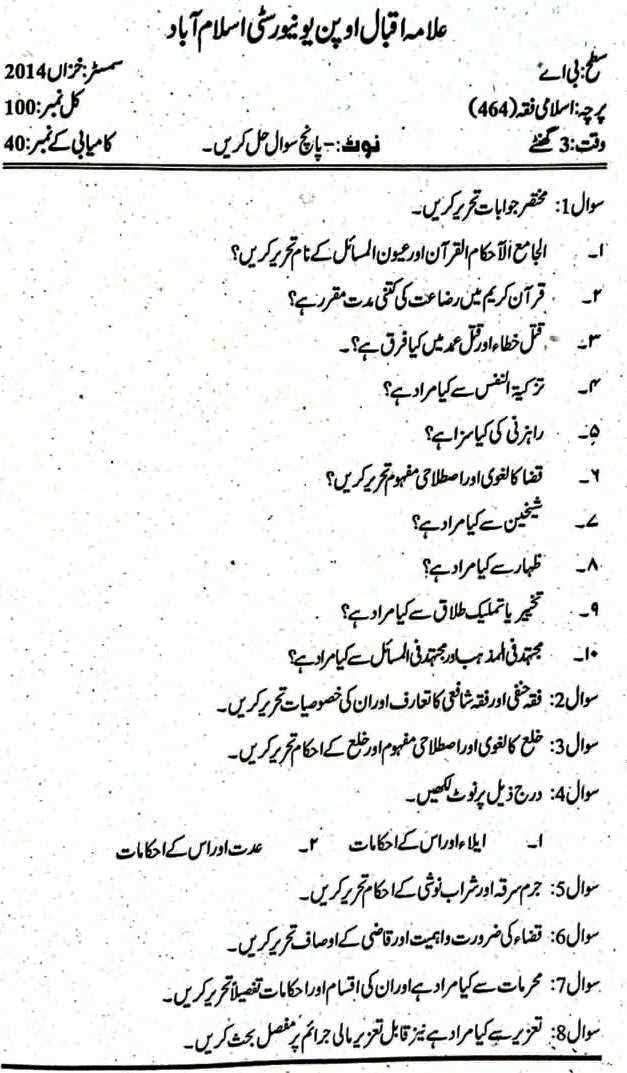 علامہ اقبال اوپن یونیورسٹی اسلام آباد
سطح: بی اے سمسٹر: خزاں 2014
پرچہ: اسلامی فقہ (464) کل نمبر: 100
وقت: 3 گھنٹے نوٹ:- پانچ سوال حل کریں۔ کامیابی کے نمبر: 40
سوال 1: مختصر جوابات تحریر کریں۔
۱۔ الجامع الآحکام القرآن اور عیون المسائل کے نام تحریر کریں؟
۲۔ قرآن کریم میں رضاعت کی کتنی مدت مقرر ہے؟
۳۔ قتل خطاء اور قتل عمد میں کیا فرق ہے؟۔
۴۔ تزکیۃ النفس سے کیا مراد ہے؟
۵۔ راہزنی کی کیا سزا ہے؟
۶۔ قضا کا لغوی اور اصطلاحی مفہوم تحریر کریں؟
۷۔ شیخین سے کیا مراد ہے؟
۸۔ ظہار سے کیا مراد ہے؟
۹۔ تخییر یا تملیک طلاق سے کیا مراد ہے؟
۱۰۔ مجتہد فی المذہب اور مجتہد فی المسائل سے کیا مراد ہے؟
سوال 2: فقہ حنفی اور فقہ شافعی کا تعارف اور ان کی خصوصیات تحریر کریں۔
سوال 3: خلع کا لغوی اور اصطلاحی مفہوم اور خلع کے احکام تحریر کریں۔
سوال 4: درج ذیل پر نوٹ لکھیں۔
۱۔ ایلاء اور اس کے احکامات ۲۔ عدت اور اس کے احکامات
سوال 5: جرم سرقہ اور شراب نوشی کے احکام تحریر کریں۔
سوال 6: قضاء کی ضرورت و اہمیت اور قاضی کے اوصاف تحریر کریں۔
سوال 7: محرمات سے کیا مراد ہے اور ان کی اقسام اور احکامات تفصیلاً تحریر کریں۔
سوال 8: تعزیر سے کیا مراد ہے نیز قابل تعزیر مالی جرائم پر مفصل بحث کریں۔